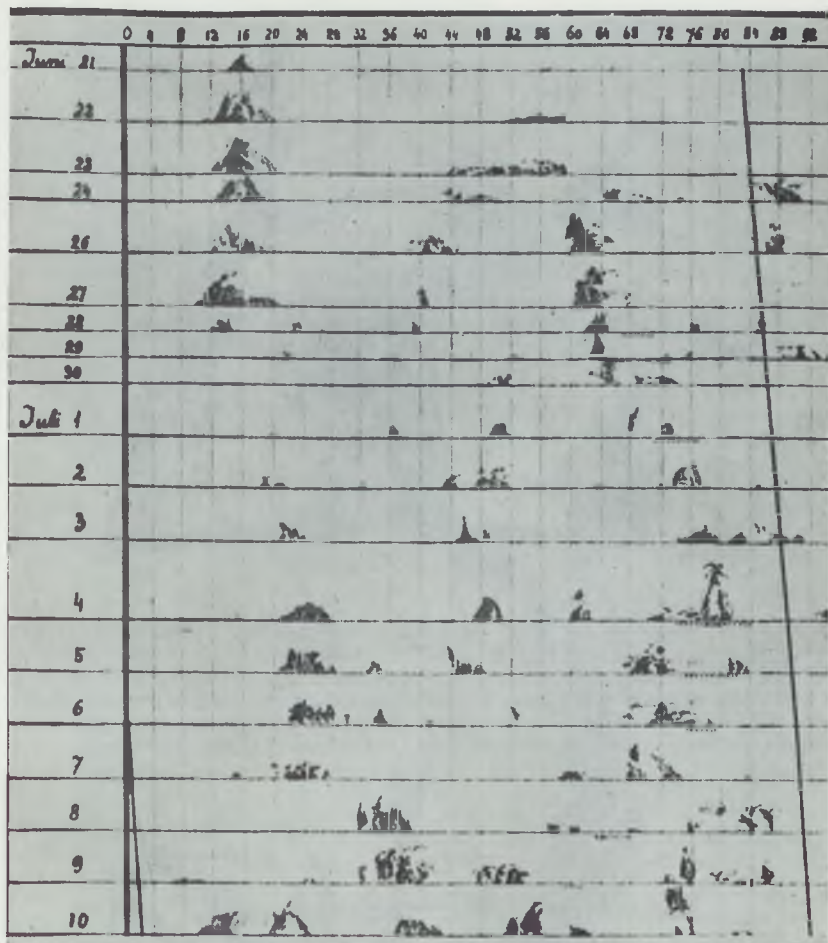 0 4 8 12 16 20 24 28 32 36 40 44 48 52 56 60 64 68 72 76 80 84 88 92
Juni 21
22
23
24
26
27
28
29
30
Juli 1
2
3
4
5
6
7
8
9
10